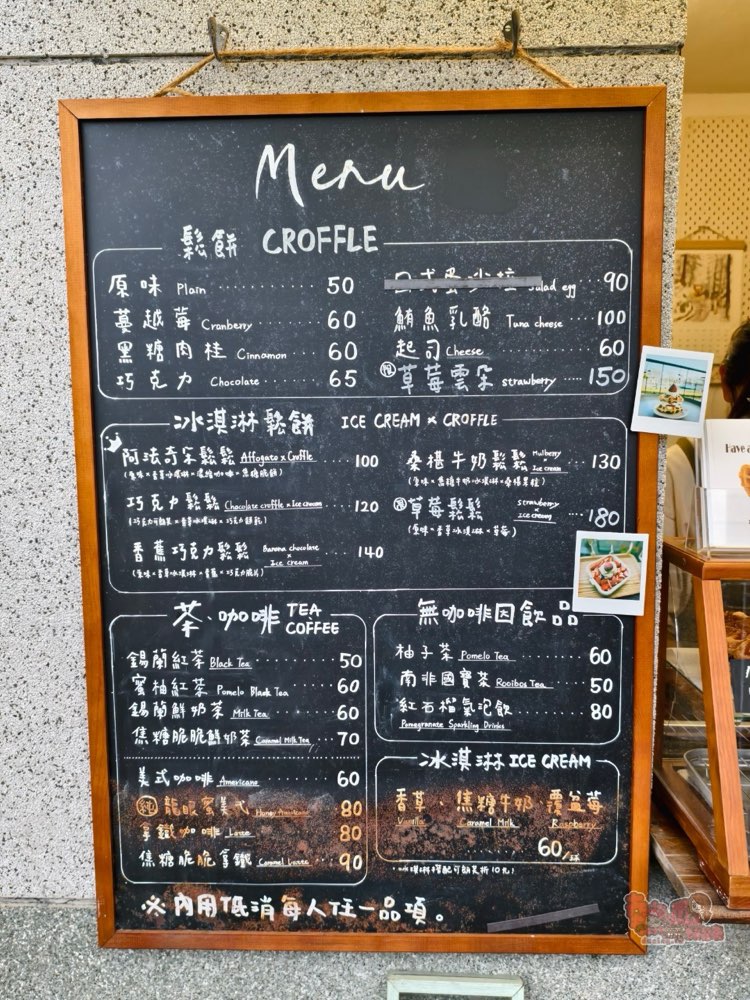 Menu
鬆餅 CROFFLE
原味 Plain 50
蔓越莓 Cranberry 60
黑糖肉桂 Cinnamon 60
巧克力 Chocolate 65
日式蛋沙拉 Salad egg 90
鮪魚乳酪 Tuna cheese 100
起司 Cheese 60
草莓雲朵 strawberry 150
冰淇淋鬆餅 ICE CREAM × CROFFLE
阿法奇朵鬆鬆 Affogato × Croffle 100
巧克力鬆鬆 Chocolate croffle × Ice cream 120
香蕉巧克力鬆鬆 Banana chocolate × Ice cream 140
桑椹牛奶鬆鬆 Mulberry × Ice cream 130
草莓鬆鬆 strawberry × Ice cream 180
(原味×香草冰淇淋×草莓)
茶、咖啡 TEA COFFEE
錫蘭紅茶 Black Tea 50
蜜柚紅茶 Pomelo Black Tea 60
錫蘭鮮奶茶 Milk Tea 60
焦糖脆脆鮮奶茶 Caramel Milk Tea 70
美式咖啡 Americano 60
純 龍眼蜜美式 Honey Americano 80
拿鐵咖啡 Latte 80
焦糖脆脆拿鐵 Caramel Latte 90
無咖啡因飲品
柚子茶 Pomelo Tea 60
南非國寶茶 Rooibos Tea 50
紅石榴氣泡飲 80
Pomegranate Sparkling Drinks
冰淇淋 ICE CREAM
香草、焦糖牛奶、覆盆莓
Vanilla Caramel Milk Raspberry
60/球
※內用低消每人任一品項。
Have a